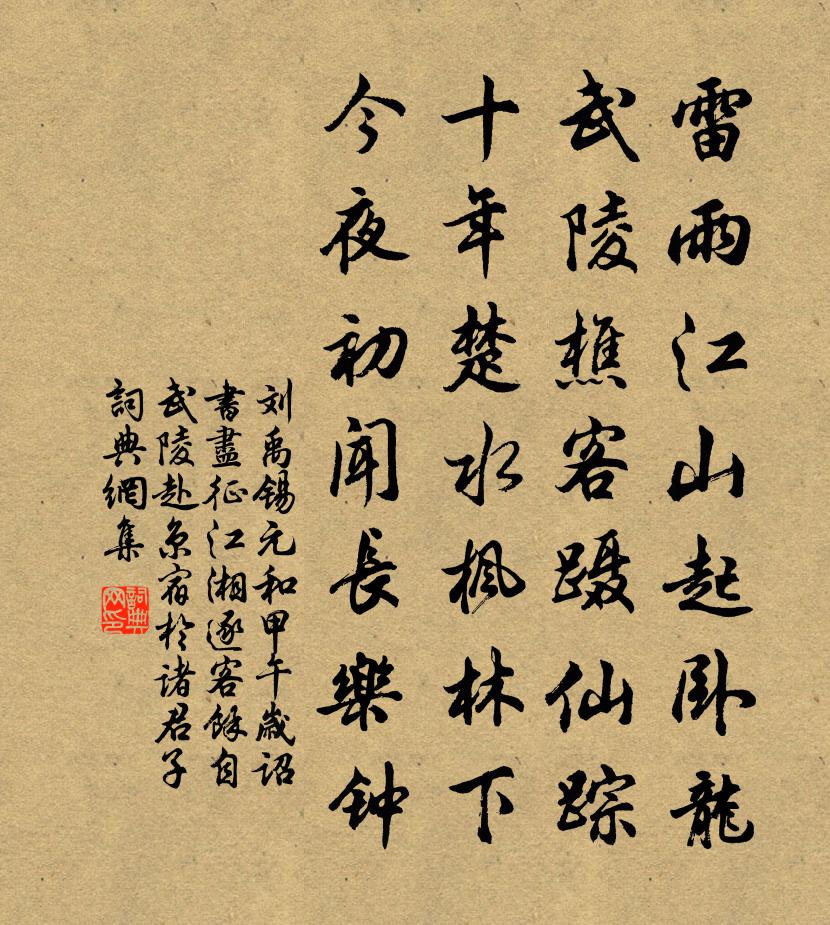 雷雨江山起卧龍
武陵樵客蹑仙踪
十年楚水枫林下
今夜初闻長樂钟
刘禹锡元和甲午歳詔
書盡征江湘逐客餘自
武陵赴京宿於诸君子
詞典網集
詞典网印